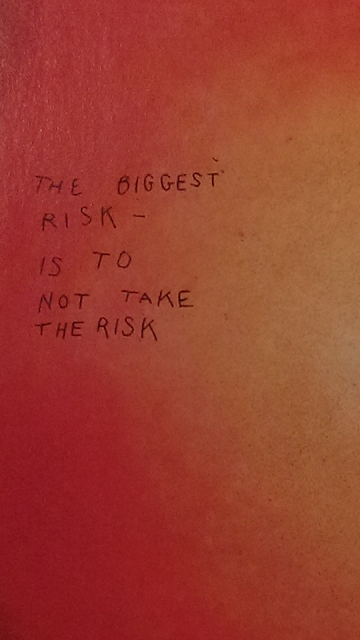 THE BIGGEST
RISK -
IS TO
NOT TAKE
THE RISK